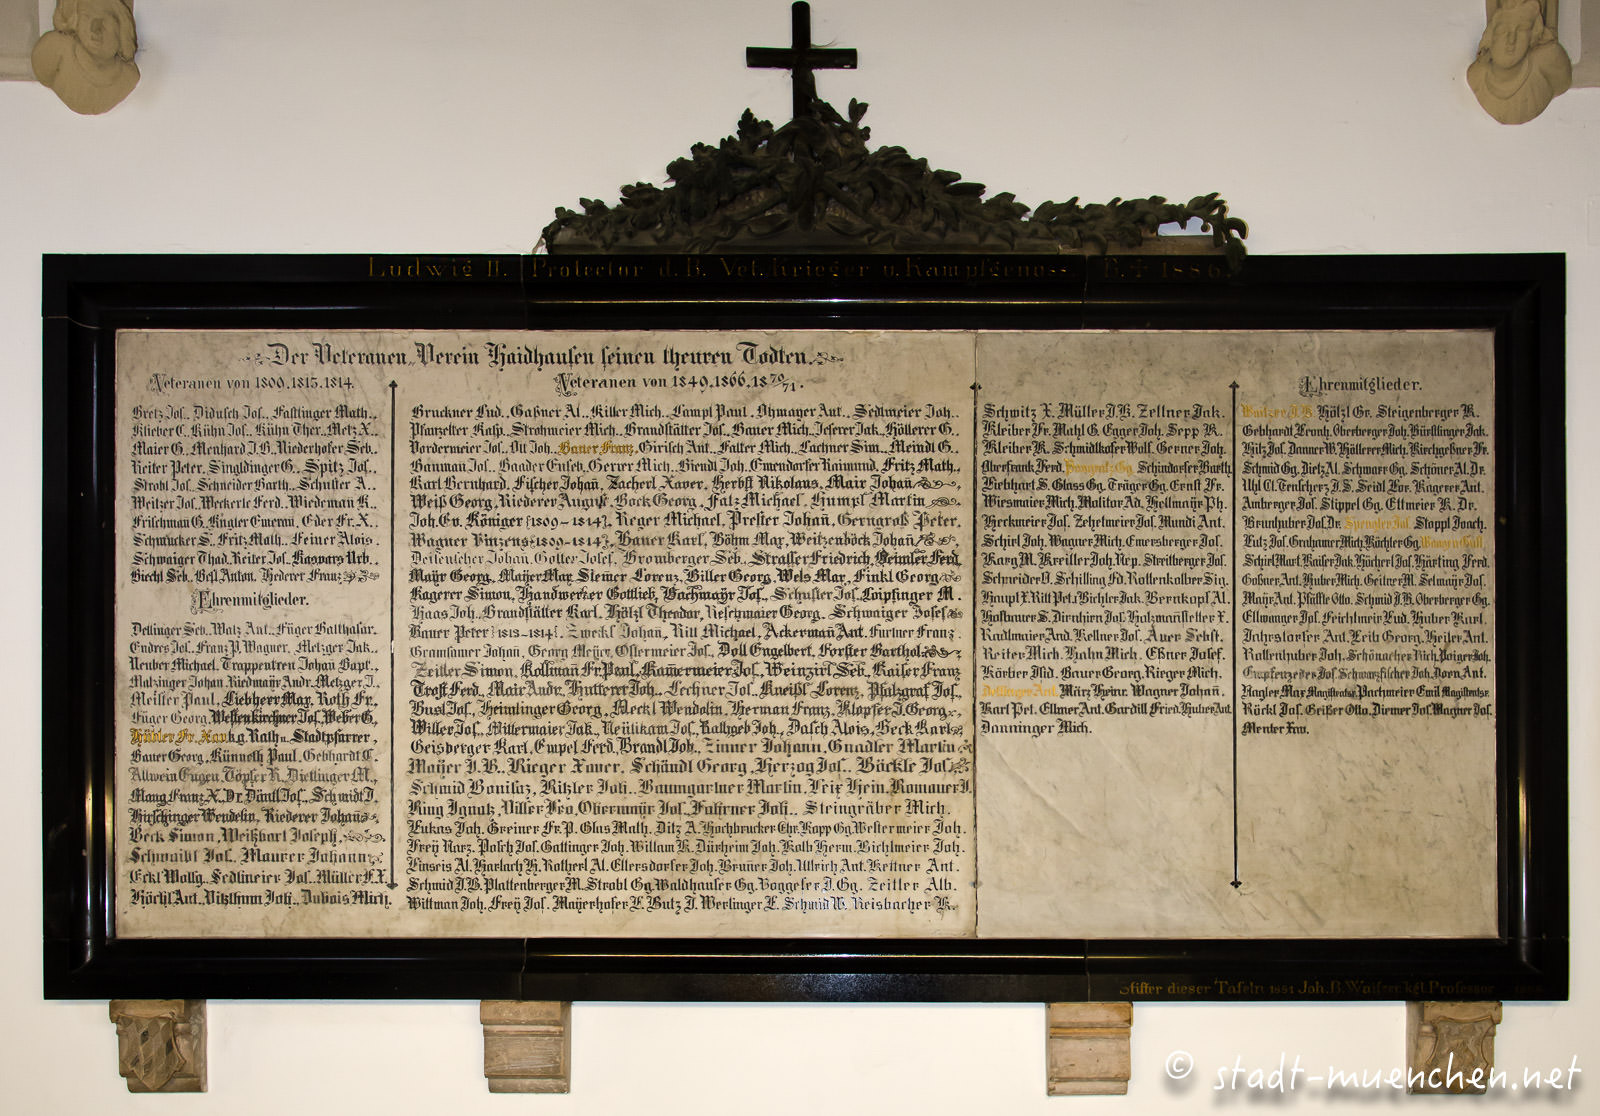 Ludwig II. Protector d. B. Vet. Krieger u. Kampfgenoss. B. † 1886.
Der Veteranen-Verein Haidhausen seinen theuren Todten.
Veteranen von 1800, 1815, 1814.
Bretz Jos., Didusch Jos., Fastlinger Math.,
Klieber C. Kühn Jos., Kühn Ther., Metz X.,
Maier G., Menhard J.B. Niederhofer Seb.,
Reiter Peter, Singldinger G., Spitz Jos.,
Strobl Jos., Schneider Barth., Schuster A.,
Weitzer Jos., Weckerle Ferd. Wiedeman K.,
Frischman G. Kugler Emeran, Eder Fr. X.,
Schmucker S. Fritz Math., Feiner Alois,
Schwaiger Thad. Reiter Jos. Kaspars Urb.
Biechl Seb. Besl Anton, Hederer Franz
Ehrenmitglieder.
Dettinger Seb. Watz Ant., Füger Balthasar,
Endres Jos. Franz P. Wagner, Metzger Jak.,
Neuber Michael, Trappentreu Johañ Bapt.,
Matzinger Johan Riedmayr Andr. Metzger J.,
Meister Paul, Liebherr Max, Roth Fr.
Füger Georg, Westenkirchner Jos. Weber G.
Hübler Fr. Xav. kg. Rath u. Stadtpfarrer,
Bauer Georg, Künneth Paul, Gebhardt C.
Allwein Eugen, Töpfer K. Dietlinger M.,
Mang Franz X., Dr. Däntl Jos., Schmidt J.
Hirschinger Wendelin, Riederer Johann
Beck Simon, Weißbart Joseph,
Schwaibl Jos., Maurer Johann,
Eckl Wolfg. Sedlmeier Jos., Müller F.X.
Höchl Ant., Vitzthum Joh., Dubois Mich.
Veteranen von 1849, 1866, 1870/71.
Bruckner Lud., Gaßner Al., Killer Mich., Lampl Paul, Ohmayer Ant., Sedlmeier Joh.,
Pfanzelter Kasp. Strohmeier Mich., Brandstätter Jos., Bauer Mich., Jeserer Jak., Höllerer G.,
Vordermeier Jos., Ott Joh., Bauer Franz, Girisch Ant., Falter Mich., Lachner Sim., Meindl G.
Bauman Jos., Baader Euseb. Gerner Mich., Biendl Joh. Emendorfer Raimund, Fritz Math.,
Karl Bernhard, Fischer Johañ, Zacherl Xaver, Herbst Nikolaus, Mair Johañ
Weiß Georg, Riederer August, Bock Georg, Fatz Michael, Humpl Martin
Joh. Ev. Königer {1809–1814}, Reger Michael, Prester Johañ, Gerngroß Peter,
Wagner Vinzens {1809–1814}, Bauer Karl, Böhm Max, Weitzenböck Johañ
Deisenrieder Johan, Gotter Josef, Bromberger Seb., Strasser Friedrich, Heimler Ferd.
Mayr Georg, Mayer Max, Steiner Lorenz, Biller Georg, Wels Max, Finkl Georg
Kagerer Simon, Handwerker Gottlieb, Bachmayr Jos., Schuster Jos. Loipfinger M.
Haas Joh., Brandstätter Karl, Hölzl Theodor, Schwaiger Josef
Bauer Peter {1813–1814}, Zweckl Johañ, Ritt Michael, Ackermañ Ant. Furtner Franz
Gramsauer Johañ, Georg Meyer, Ostermeier Jos., Doll Engelbert, Forster Barthol.
Zeitler Simon, Kollman Fr. Paul, Kamermeier Jos., Weinzirl Seb. Kaiser Franz
Trost Ferd., Mair Andr., Hutterer Joh., Lechner Jos., Kneißl Lorenz, Pfalzgraf Jos.
Busl Jos., Heimlinger Georg, Meckl Wendolin, Herman Franz, Klopfer J. Georg,
Willer Jos., Mittermaier Jak., Neülikam Jos., Kathgeb Joh., Dasch Alois, Beck Karl
Geisberger Karl, Empel Ferd., Brandl Joh., Zinner Johann, Gnadler Martin
Mayer J.B., Rieger Xaver, Schändl Georg, Herzog Jos., Böckle Jos.
Schmid Bonifaz, Ritzler Joh., Baumgartner Martin, Feix Hein. Romauer J.
Ring Ignatz, Visser Leo, Obermayr Jos., Fahrner Joh., Steingräber Mich.
Lukas Joh. Greiner Fr. P. Glas Math. Ditz A. Hochbrucker Chr. Kopp Gg. Westermeier Joh.
Frey Narz. Posch Jos. Gattinger Joh. William K. Dürheim Joh. Kolb Herm. Bichlmeier Joh.
Einseis Al. Harlach H. Rotherl Al. Ellersdorfer Joh. Bruñer Joh. Ullrich Ant. Kettner Ant.
Schmid J.B. Plattenberger M. Strobl Gg. Waldhauser Gg. Boggeser J. Gg. Zeitler Alb.
Wittman Joh. Frey Jos. Mayerhofer L. Butz J. Werlinger L. Schmid W. Reisbacher K.
Schwitz X. Müller J.B. Zellner Jak.
Kleiber Fr. Mahl G. Egger Joh. Sepp K.
Kleiber K. Schmidkofer Wolf. Gerner Joh.
Oberfrank Ferd. Pangratz Gg. Schindorfer Barth.
Liebhart S. Glass Gg. Träger Gg. Ernst Fr.
Wiesmaier Mich. Molitor Ad. Hellmayr Ph.
Heckmeier Jos. Zehetmeier Jos. Mundi Ant.
Schirl Joh. Wagner Mich. Emersberger Jos.
Karg M. Kreitler Joh. Nep. Streitberger Jos.
Schneider O. Schilling Fd. Rottenkolber Sig.
Haupt X. Ritt Pet. Bichler Jak. Bernkopf Al.
Hofbauer S. Dirnhirn Jos. Holzmanstetter X.
Radlmaier And. Kellner Jos. Auer Sebst.
Reiter Mich. Hahn Mich. Eßner Josef.
Körber Isid. Bauer Georg. Rieger Mich.
Dollinger Ant. März Heinr. Wagner Johañ.
Karl Pet. Ellmer Ant. Gardill Fried. Huber Ant.
Danninger Mich.
Ehrenmitglieder.
Waitzer J. B. Hölzl Gr. Steigenberger K.
Gebhardt Leonh. Oberberger Joh. Bürstlinger Jak.
Hitz Jos. Danner W. Höllerer Mich. Kirchgeßner Fr.
Schmid Gg. Dietz Al. Schwarz Gg. Schöner Al. Dr.
Uhl Cl. Trutscherz J.S. Seidl Lor. Kagerer Ant.
Amberger Jos. Stippel Gg. Ettmeier K. Dr.
Brunhuber Jos. Dr. Spengler Jos. Stoppl Joach.
Lutz Jos. Grahamer Mich. Küchler Gg. Wangen Gust.
Schirl Mart. Kaiser Jak. Höcherl Jos. Härting Ferd.
Goßner Ant. Huber Mich. Geitner M. Selmayr Jos.
Mayr Ant. Pfäffle Otto. Schmid J.B. Oberberger Gg.
Ellwanger Jos. Freichlmeir Lud. Huber Karl.
Jahrstorfer Ant. Leib Georg. Heiler Ant.
Rottenhuber Joh. Schönacher Rich. Voiger Joh.
Empfenzeder Jos. Schwarzfischer Joh. Dorn Ant.
Nagler Max Magistratsr. Pachmeier Emil Magistratsr.
Röckl Jos. Geißer Otto. Diemer Jos. Wagner Jos.
Menter Xav.
Stifter dieser Tafeln 1851 Joh. B. Waitzer kgl. Professor
© stadt-muenchen.net